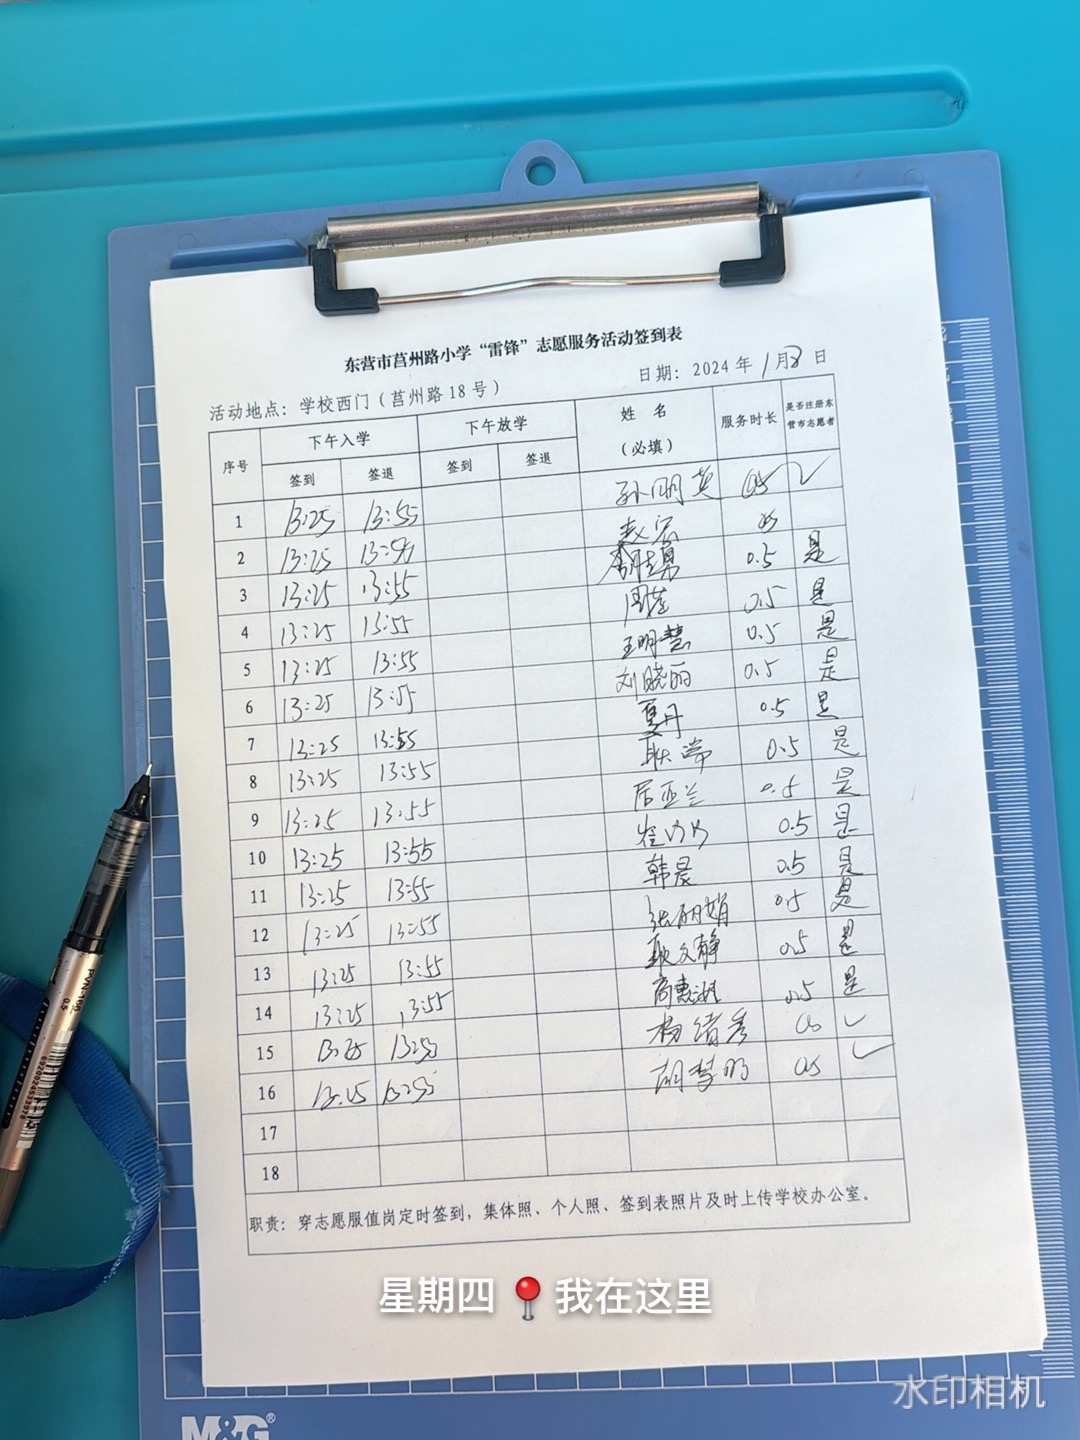 东营市莒州路小学“雷锋”志愿服务活动签到表
活动地点：学校西门（莒州路18号） 日期：2024年1月8日
序号 下午入学 下午放学 姓 名 （必填） 服务时长 是否注册东营市志愿者
签到 签退 签到 签退
1 13:25 13:55 孙明英 0.5 ✓
2 13:25 13:55 赵宏 0.5
3 13:25 13:55 李胜勇 0.5 是
4 13:25 13:55 周莲 0.5 是
5 13:25 13:55 王明慧 0.5 是
6 13:25 13:55 刘晓丽 0.5 是
7 13:25 13:55 夏丹 0.5 是
8 13:25 13:55 耿 0.5 是
9 13:25 13:55 亚兰 0.5 是
10 13:25 13:55 0.5 是
11 13:25 13:55 韩晨 0.5 是
12 13:25 13:55 张丽娟 0.5 是
13 13:25 13:55 耿文静 0.5 是
14 13:25 13:55 商惠 0.5 是
15 13:25 13:55 杨绪秀 0.5 ✓
16 13:25 13:55 胡梦明 0.5 ✓
17
18
职责：穿志愿服值岗定时签到，集体照、个人照、签到表照片及时上传学校办公室。
星期四 📍 我在这里
水印相机
M&G®
PVN-166
0.5
6920024633978